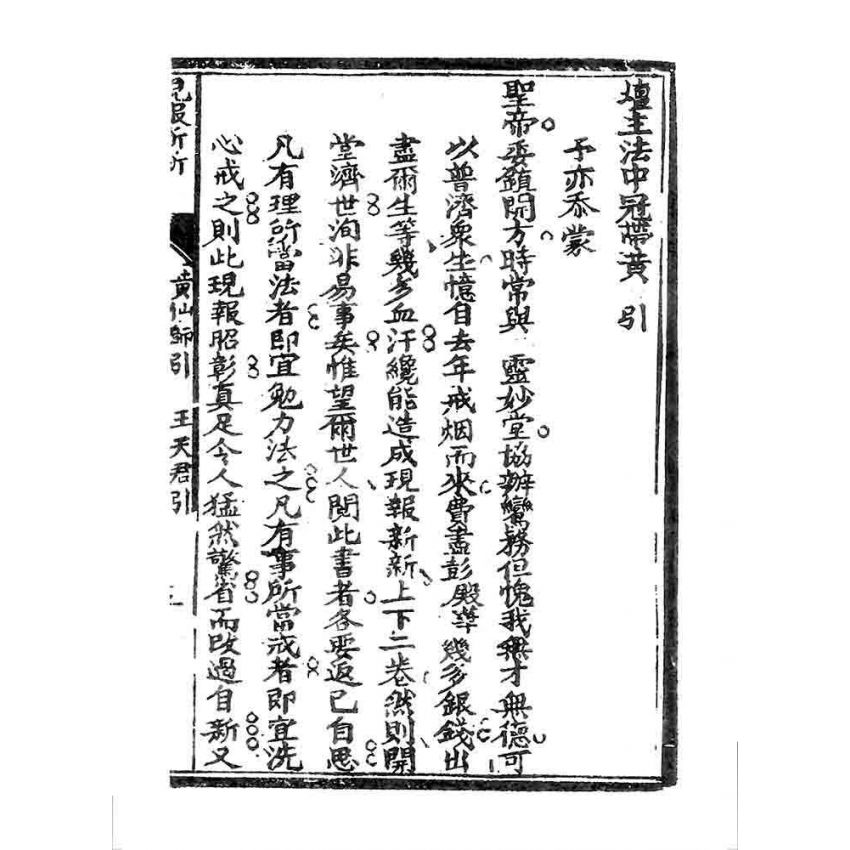 壇主法中冠帶黃 引
予亦忝蒙
聖帝委鎮開方時常與 靈妙堂協辦鸞務但愧我無才無德可
以普濟眾生憶自去年戒烟而來費盡彭殿華幾多銀錢出
盡爾生等幾多血汗纔能造成現報新新上下二卷然則開
堂濟世洵非易事矣惟望爾世人閱此書者各要返已自思
凡有理所當法者即宜勉力法之凡有事所當戒者即宜洗
心戒之則此現報昭彰真足令人猛然驚省而改過自新又
黃仙師引 王天君引